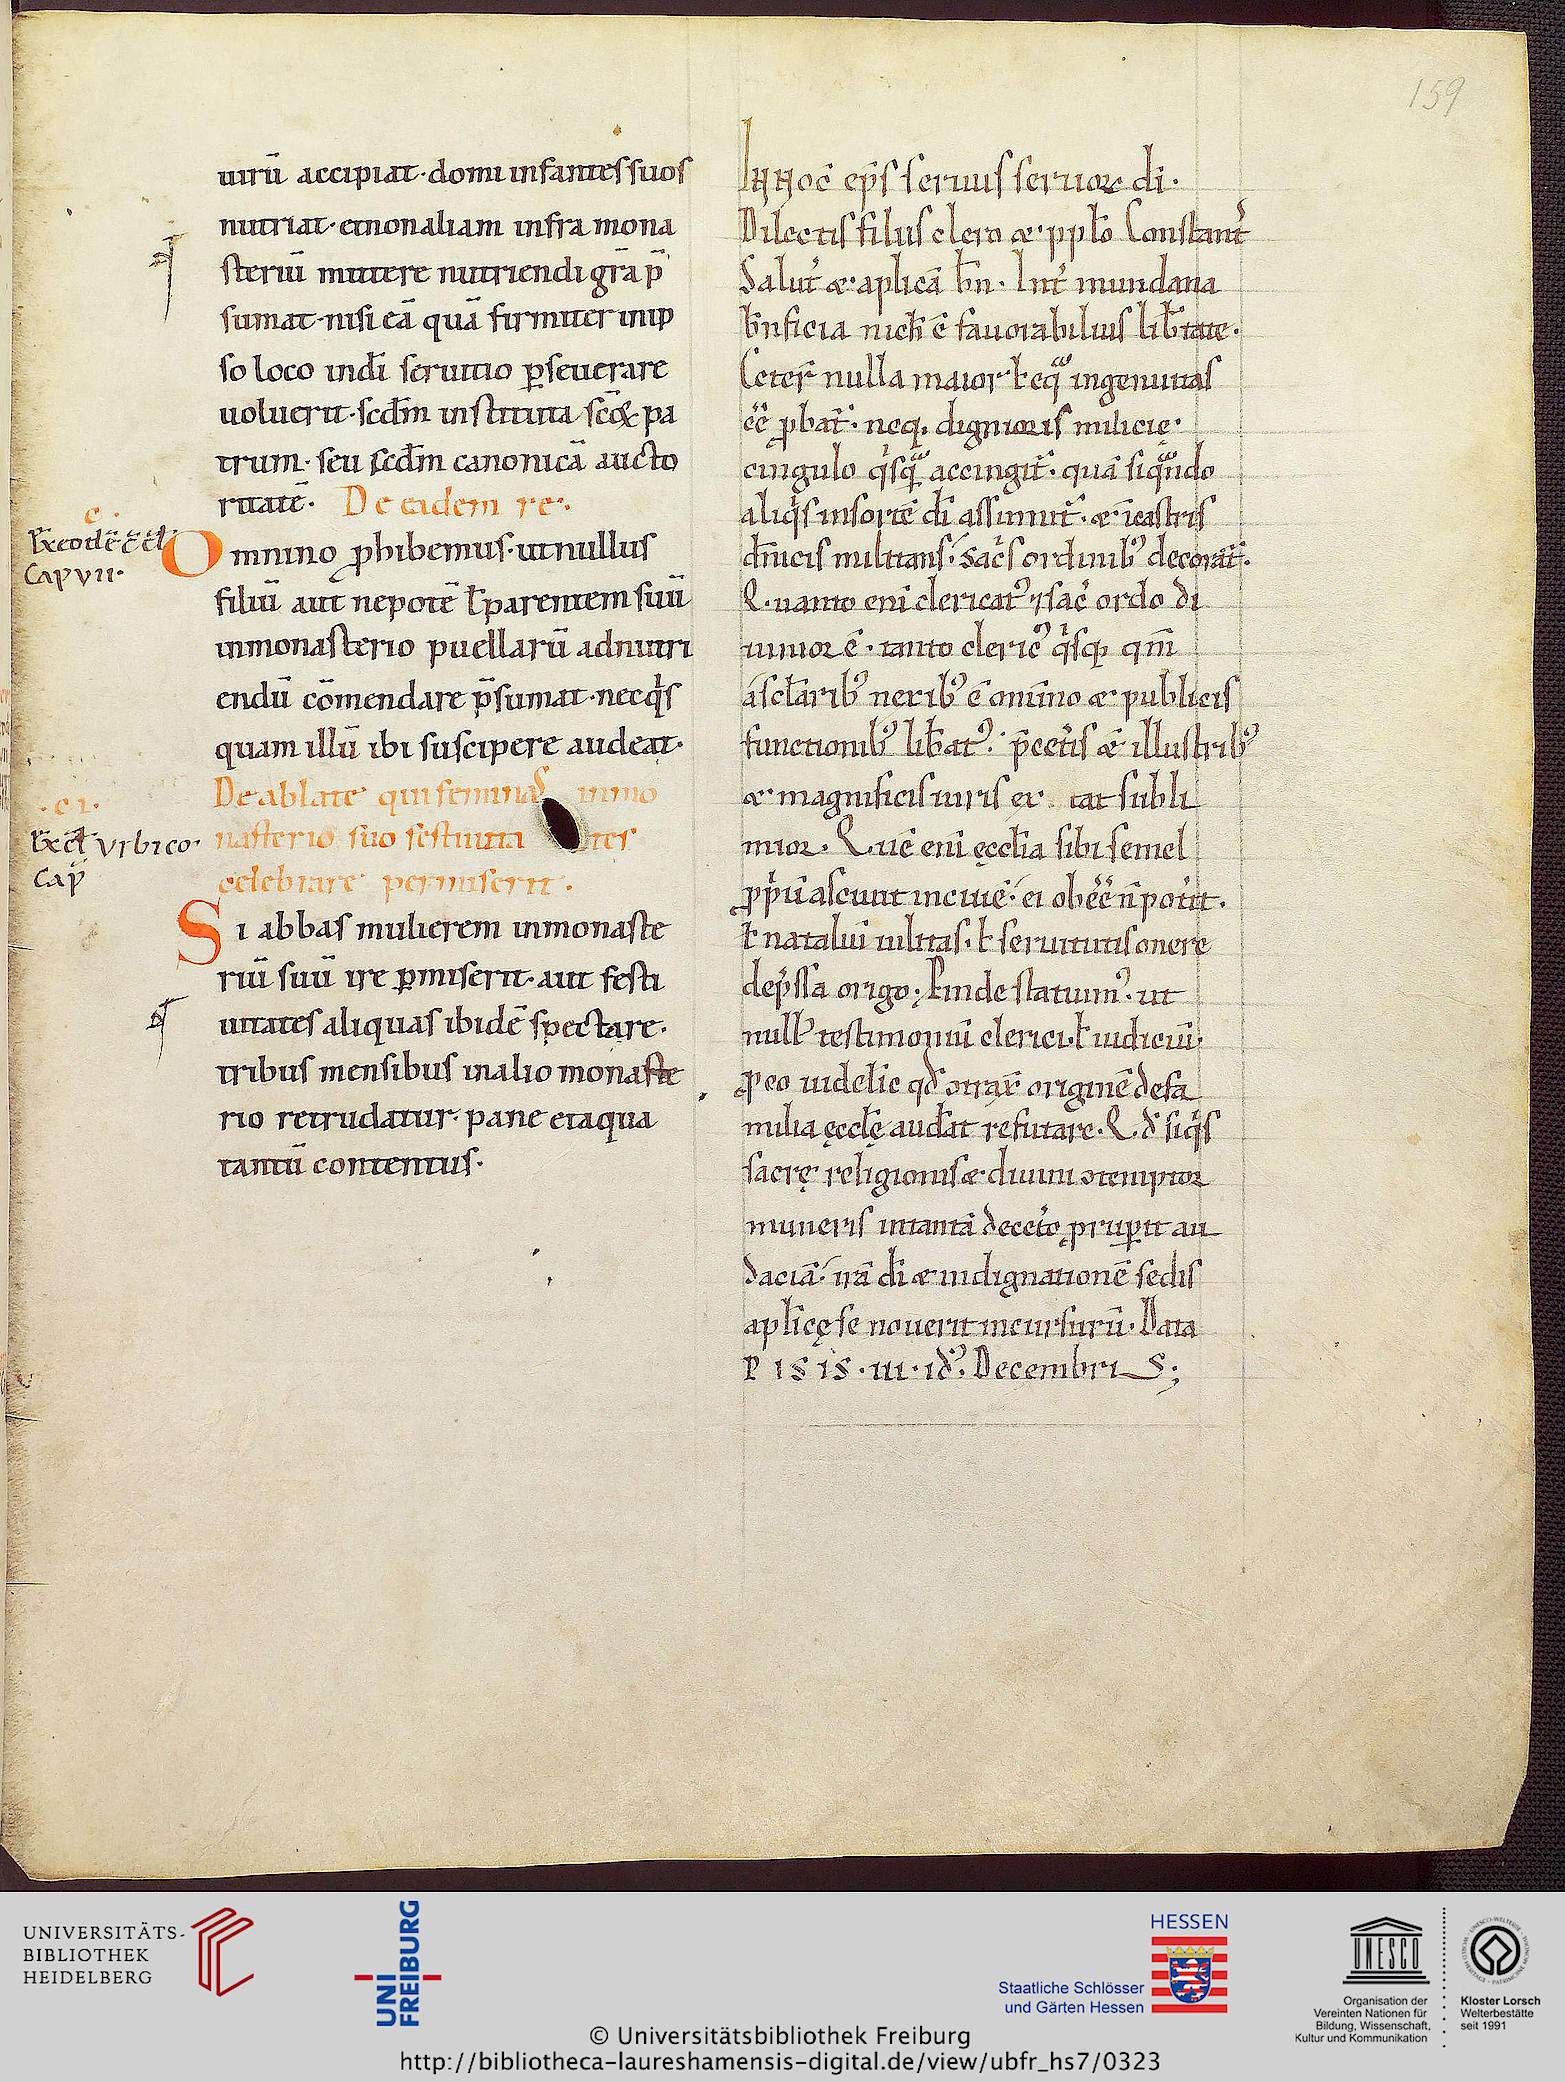 159
uirū accipiat· domi infantes suos
nutriat· et non aliam infra mona
steriū mittere nutriendi grā p̄
sumat· nisi eā quā firmiter in ip
so loco in dī seruitio ꝑseuerare
uoluerit· scdm̄ instituta scōꝝ pa
trum· seu scdm̄ canonicā aucto
ritatē· De eadem re·
c·
Ex eodē
Cap VII·
Omnino ꝓhibemus· ut nullus
filiū aut nepotē ł parentem suū
in monasterio puellarū ad nutri
endū cōmendare p̄sumat· nec qͥs
quam illū ibi suscipere audeat·
De abbate qui feminas in mo
nasterio suo festiuita tes
celebrare permiserit·
·ci·
Ex cł Vrbico·
Cap̄
Si abbas mulierem in monaste
riū suū ire ꝑmiserit· aut festi
uitates aliquas ibidē spectare·
tribus mensibus in alio monaste
rio retrudatur· pane et aqua
tantū contentus·
Innoc̄ ep̄s seruus seruoꝝ dī·
Dilectis filiis clero & pplo Constant̄
Salut̄ & aplicā bn̄· Int̄ mundana
bn̄ficia nich ē fauorabilius lib̄tate·
Ceter̄ nulla maior ł eq̄ ingenuitas
eē ꝓbat̄· neq, dignioris milicię·
cingulo qͥsq̄ accingit̄· quā siqͣndo
aliqͥs in sortē dī assumit̄· & ī castris
dn̄icis militans· sac̄s ordinibꝰ decorat̄·
Quanto enī clericatꝰ ⁊ sac̄ ordo di
uinior ē· tanto clericꝰ qͥsq, qm̄
a sc̄laribꝰ neribꝰ ē omīno & publicis
functionibꝰ lib̄atꝰ· p̄cet̄is & illustribꝰ
& magnificis uiris ex tat subli
mior· Quē enī ęcclīa sibi semel
ꝓpͥū asciuit in ciuē· ei obeē n̄ potͥit·
ł natalui uilitas· ł seruitutis onere
dep̄ssa origo· Proinde statuimꝰ· ut
nullꝰ testimoniū clerici· ł iudiciū·
ꝓ eo uidelic qd̄ ↄtrax̄ originē de fa
milia ęcclę audeat refutare· Qd̄ siqͥs
sacrę religionis & diuini ↄtemptor
muneris in tantā decet̄o prupit au
daciā· irā dī & indignationē sedis
aplicę se nouerit incursurū· Data
PISIS· III· idꝰ· Decembris;
UNIVERSITÄTS-
BIBLIOTHEK
HEIDELBERG
UNI
FREIBURG
HESSEN
Staatliche Schlösser
und Gärten Hessen
UNESCO
Organisation der
Vereinten Nationen für
Bildung, Wissenschaft,
Kultur und Kommunikation
Kloster Lorsch
Welterbestätte
seit 1991
© Universitätsbibliothek Freiburg
http://bibliotheca-laureshamensis-digital.de/view/ubfr_hs7/0323